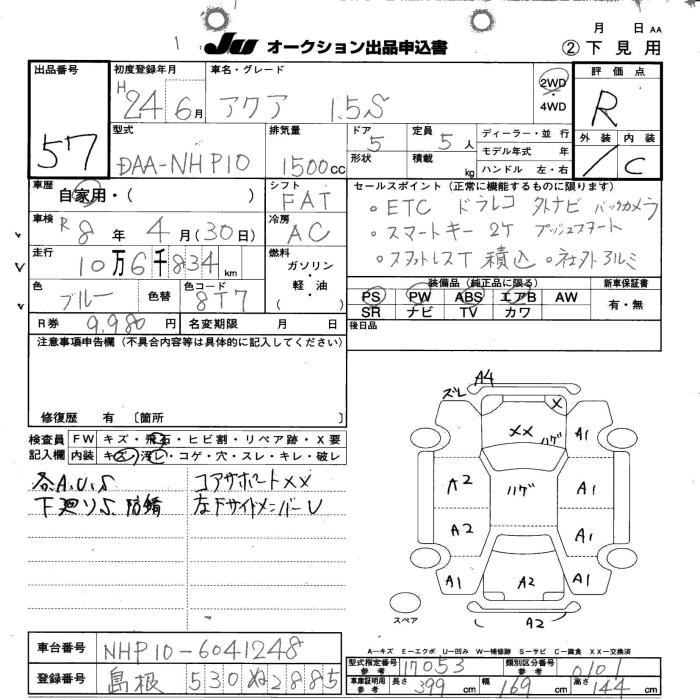 月 日 AA
JU オークション出品申込書
② 下 見 用
出品番号
57
初度登録年月
H 24 6月
車名・グレード
アクア 1.5S
2WD
4WD
評価点
R
外装 内装
/ C
型式
DAA-NHP10
排気量
1500cc
ドア
5
形状
定員
5人
積載
kg
ディーラー・並行
モデル年式 年
ハンドル 左・右
車歴
自家用・( )
シフト
FAT
セールスポイント(正常に機能するものに限ります)
。ETC ドラレコ 外ナビ バックカメラ
。スマートキー2ケ プッシュスタート
。スタットレスT積込 。社外アルミ
車検
R8年 4月(30日)
冷房
AC
走行
10万6千834km
燃料
ガソリン
・
軽・油
( )
色
ブルー
色替
色コード
8T7
装備品(純正品に限る)
新車保証書
PS PW ABS エアB AW
SR ナビ TV カワ
有・無
R券 9,980円
名変期限 月 日
後日品
注意事項申告欄(不具合内容等は具体的に記入してください)
修復歴 有 〔箇所 〕
検査員
記入欄
FW キズ・飛石・ヒビ割・リペア跡・X要
内装 キズ・汚レ・コゲ・穴・スレ・キレ・破レ
各A.U.S
コアサポートXX
下廻りS 防錆
左下サイドメンバーU
ズレ
A4
X
XX
ハゲ
A1
A2
ハゲ
A1
A2
A1
A1
A2
A1
スペア
A2
A-キズ E-エクボ U-凹み W-補修跡 S-サビ C-腐食 XX-交換済
車台番号
NHP10-6041248
登録番号
島根 530 ぬ 2885
型式指定番号
参考
17053
類別区分番号
参考
0101
車庫証明用
参考
長さ 399cm
幅 169cm
高さ 144cm